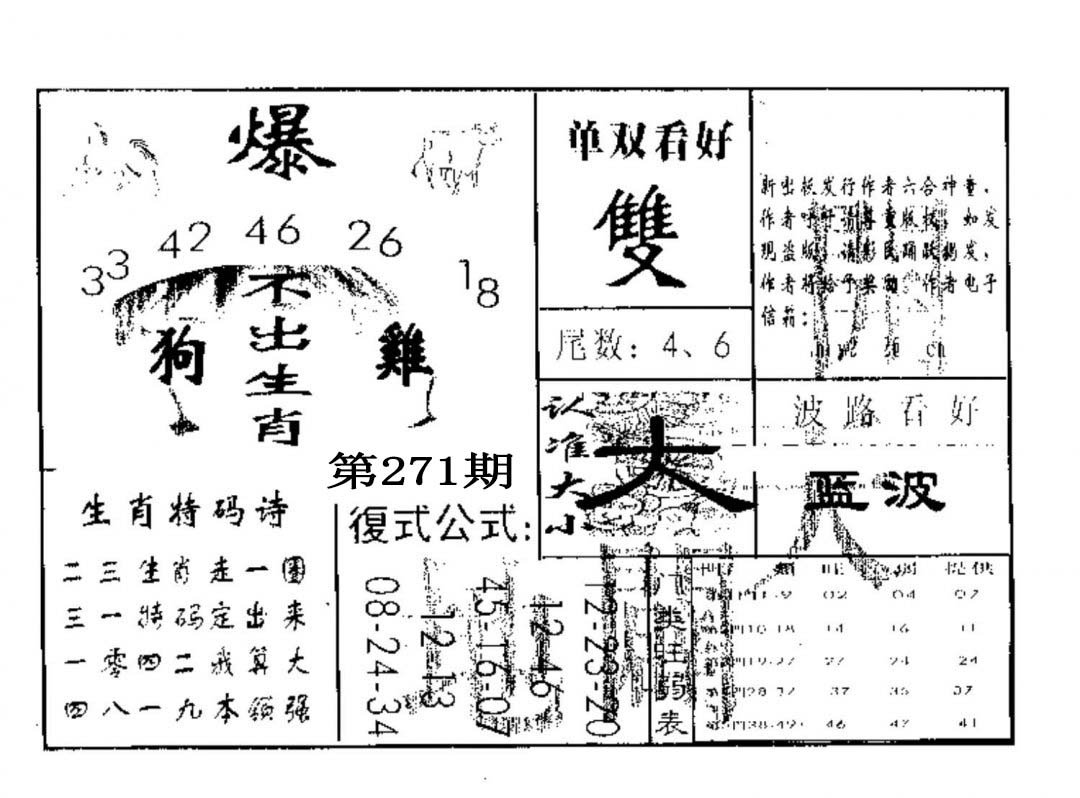 爆
33 42 46 26 18
不出生肖
狗
雞
第271期
生肖特码诗
二三生肖走一圈
三一特码定出来
一零四二我算大
四八一九本领强
復式公式:
08-24-34
12 13
45-16-07
12-46
12-23-20
单双看好
雙
尾数: 4、6
认准大小
大
新出板发行作者六合神童,
作者呼吁请尊重版权, 如发
现盗版, 请彩民踊跃揭发,
作者将给予奖励, 作者电子
信箱:
波路看好
蓝波
门类旺弱表
门 类 旺 弱 提供
02 04 07
14 16 11
27 24 24
37 35 37
46 47 41